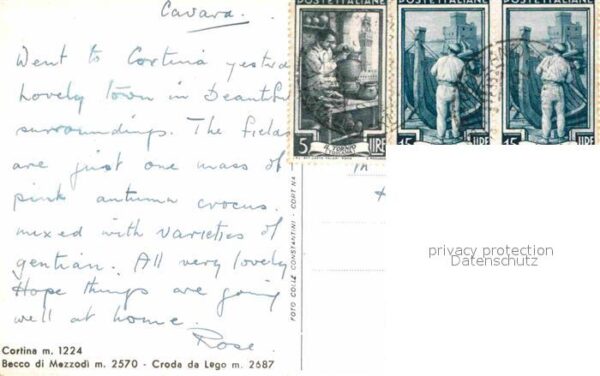 Cavara.
Went to Cortina yesterda
Lovely town in beautiful
surroundings. The fields
are just one mass of
pink autumn crocus
mixed with varieties of
gentian. All very lovely
Hope things are going
well at home.
Rose.
Cortina m. 1224
Becco di Mezzodì m. 2570 - Croda da Lego m. 2687
FOTO COLLE COSTANTINI - CORTINA
POSTE ITALIANE
5 LIRE
IL TORNIO
(TOSCANA)
POSTE ITALIANE
15 LIRE
POSTE ITALIANE
15 LIRE
privacy protection
Datenschutz